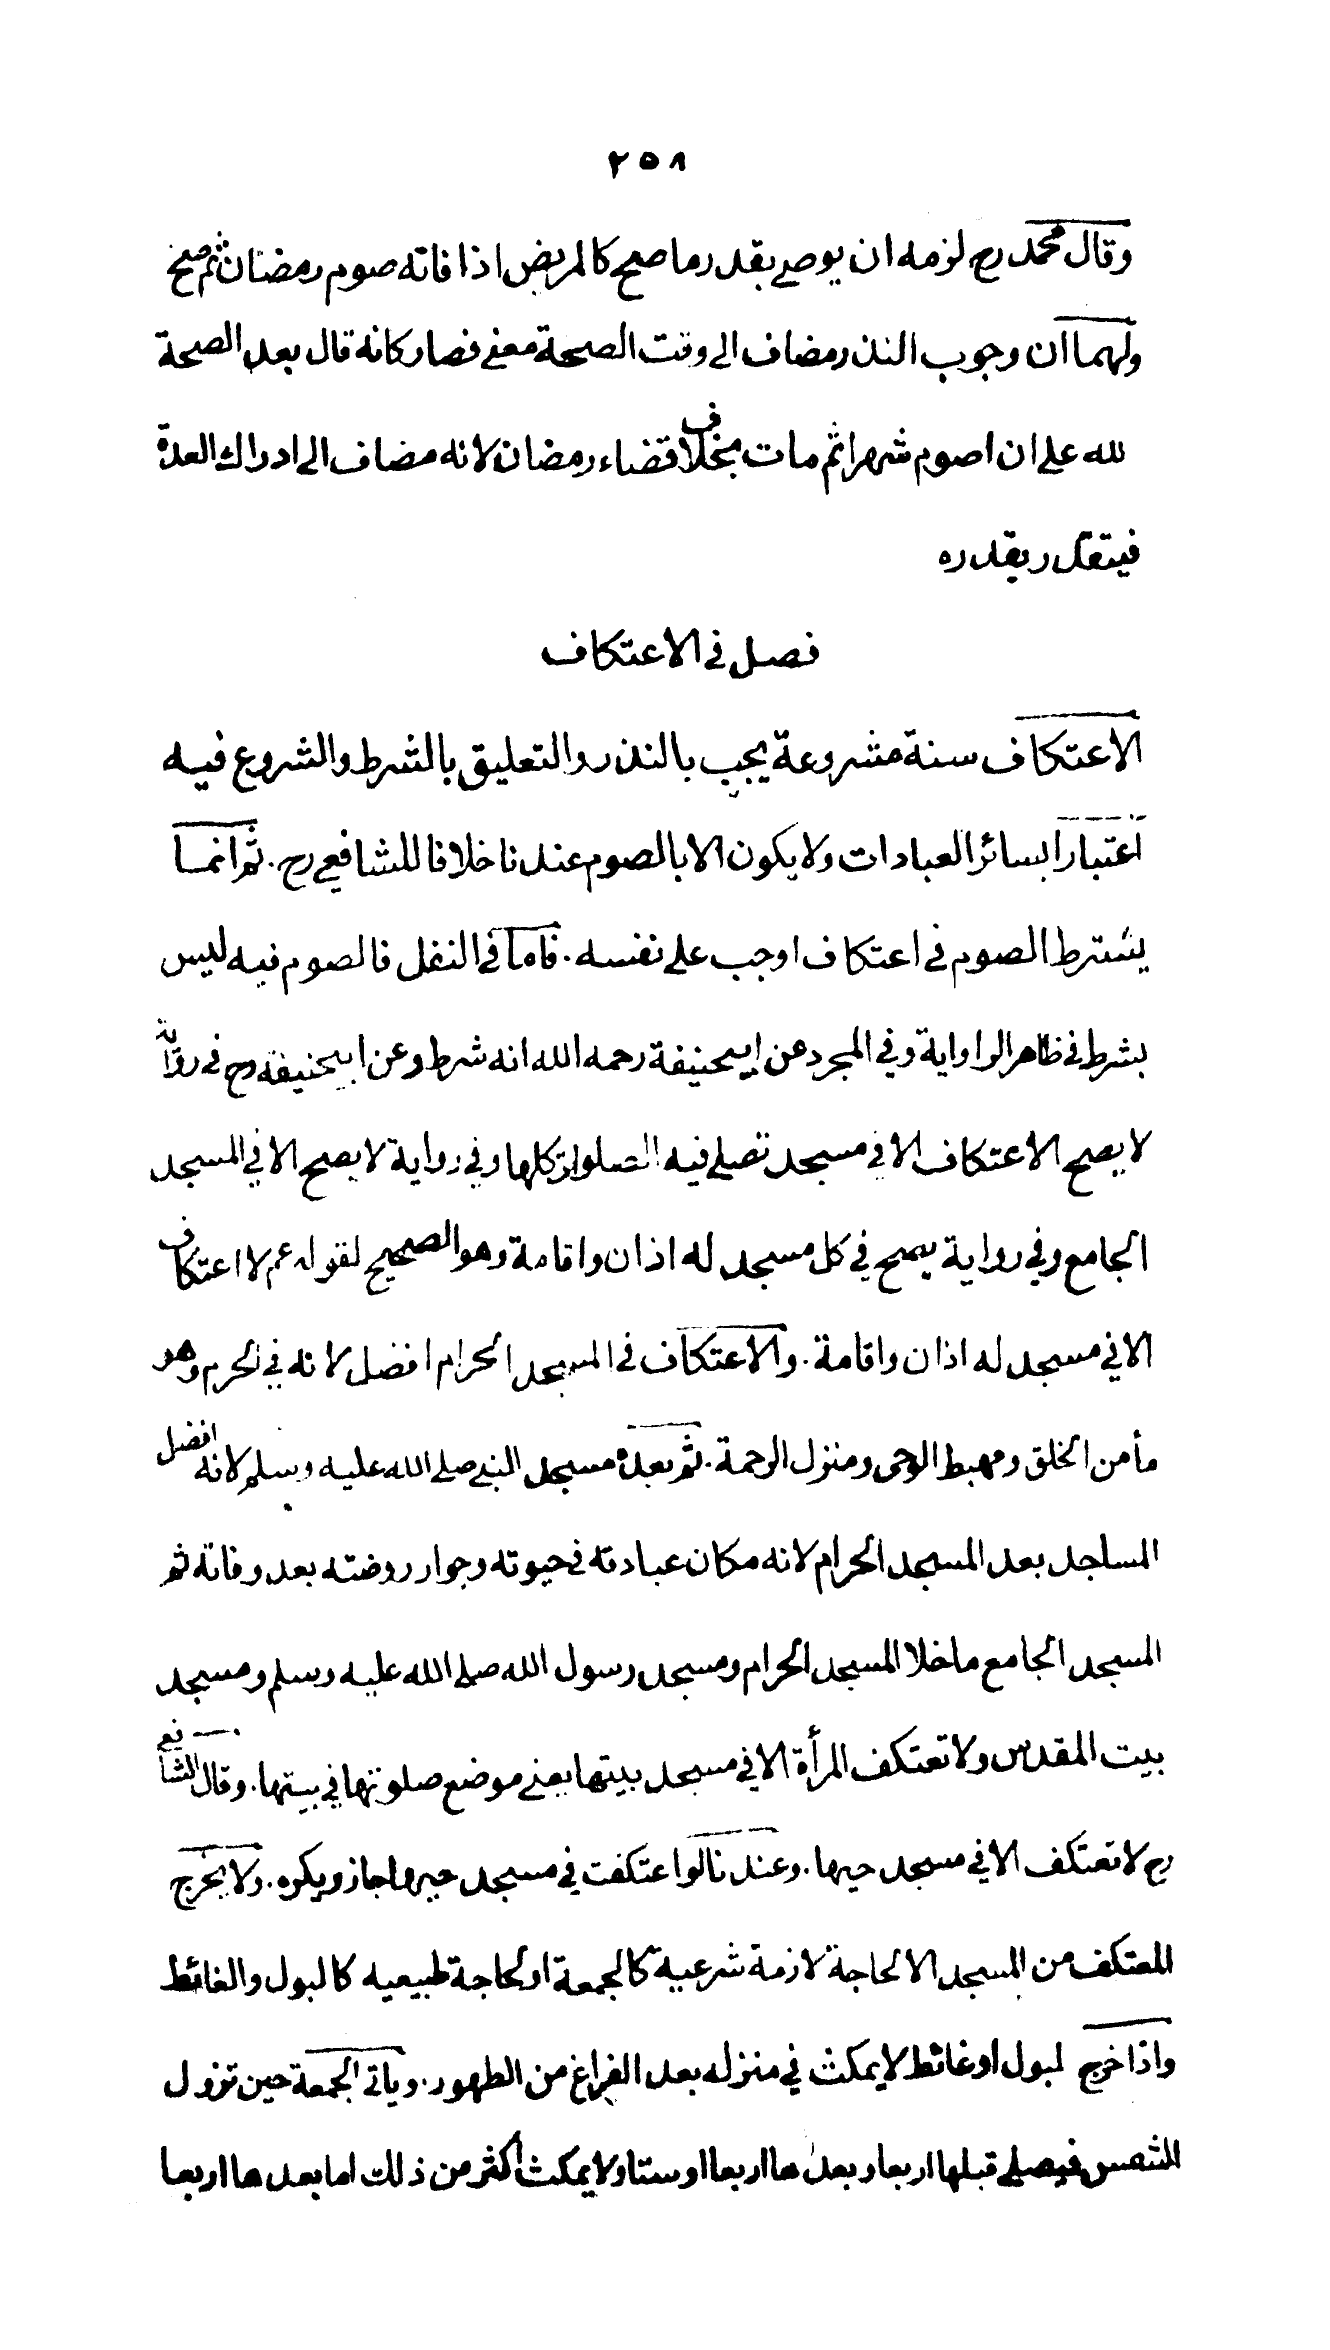 ٢٥٨
وقال محمد رح لزمه ان يوصي بقدر ما صح كالمريض اذا فاته صوم رمضان ثم صح
ولهما ان وجوب النذر مضاف الى وقت الصحة معنى فصار كانه قال بعد الصحة
لله على ان اصوم شهرا ثم مات بخلاف قضاء رمضان لانه مضاف الى ادراك العدة
فيتقدر بقدره
فصل في الاعتكاف
الاعتكاف سنة مشروعة يجب بالنذر والتعليق بالشرط والشروع فيه
اعتبارا بسائر العبادات ولا يكون الا بالصوم عندنا خلافا للشافعي رح. ثم انما
يشترط الصوم في اعتكاف اوجب على نفسه. فاما في النفل فالصوم فيه ليس
بشرط في ظاهر الرواية وفي المجرد عن ابيحنيفة رحمه الله انه شرط وعن ابيحنيفة رح في رواية
لا يصح الاعتكاف الا في مسجد تصلى فيه الصلوات كلها وفي رواية لا يصح الا في المسجد
الجامع وفي رواية يصح في كل مسجد له اذان واقامة وهو الصحيح لقوله عم لا اعتكاف
الا في مسجد له اذان واقامة. والاعتكاف في المسجد الحرام افضل لانه في الحرم وهو
مأمن الخلق ومهبط الوحى ومنزل الرحمة. ثم بعده مسجد النبي صلى الله عليه وسلم لانه افضل
المساجد بعد المسجد الحرام لانه مكان عبادته في حيوته وجوار روضته بعد وفاته ثم
المسجد الجامع ما خلا المسجد الحرام ومسجد رسول الله صلى الله عليه وسلم ومسجد
بيت المقدس ولا تعتكف المرأة الا في مسجد بيتها يعني موضع صلوتها في بيتها. وقال الشافعي
رح لا تعتكف الا في مسجد حيها. وعندنا لو اعتكفت في مسجد حيها جاز ويكره. ولا يخرج
المعتكف من المسجد الا لحاجة لازمة شرعية كالجمعة او لحاجة طبيعيه كالبول والغائط
واذا خرج لبول او غائط لا يمكث في منزله بعد الفراغ من الطهور. وياتى الجمعة حين تزول
الشمس فيصلي قبلها اربعا وبعدها اربعا او ستا ولا يمكث اكثر من ذلك اما بعدها اربعا